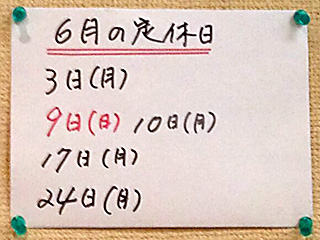 6月の定休日
3日(月)
9日(日) 10日(月)
17日(月)
24日(月)